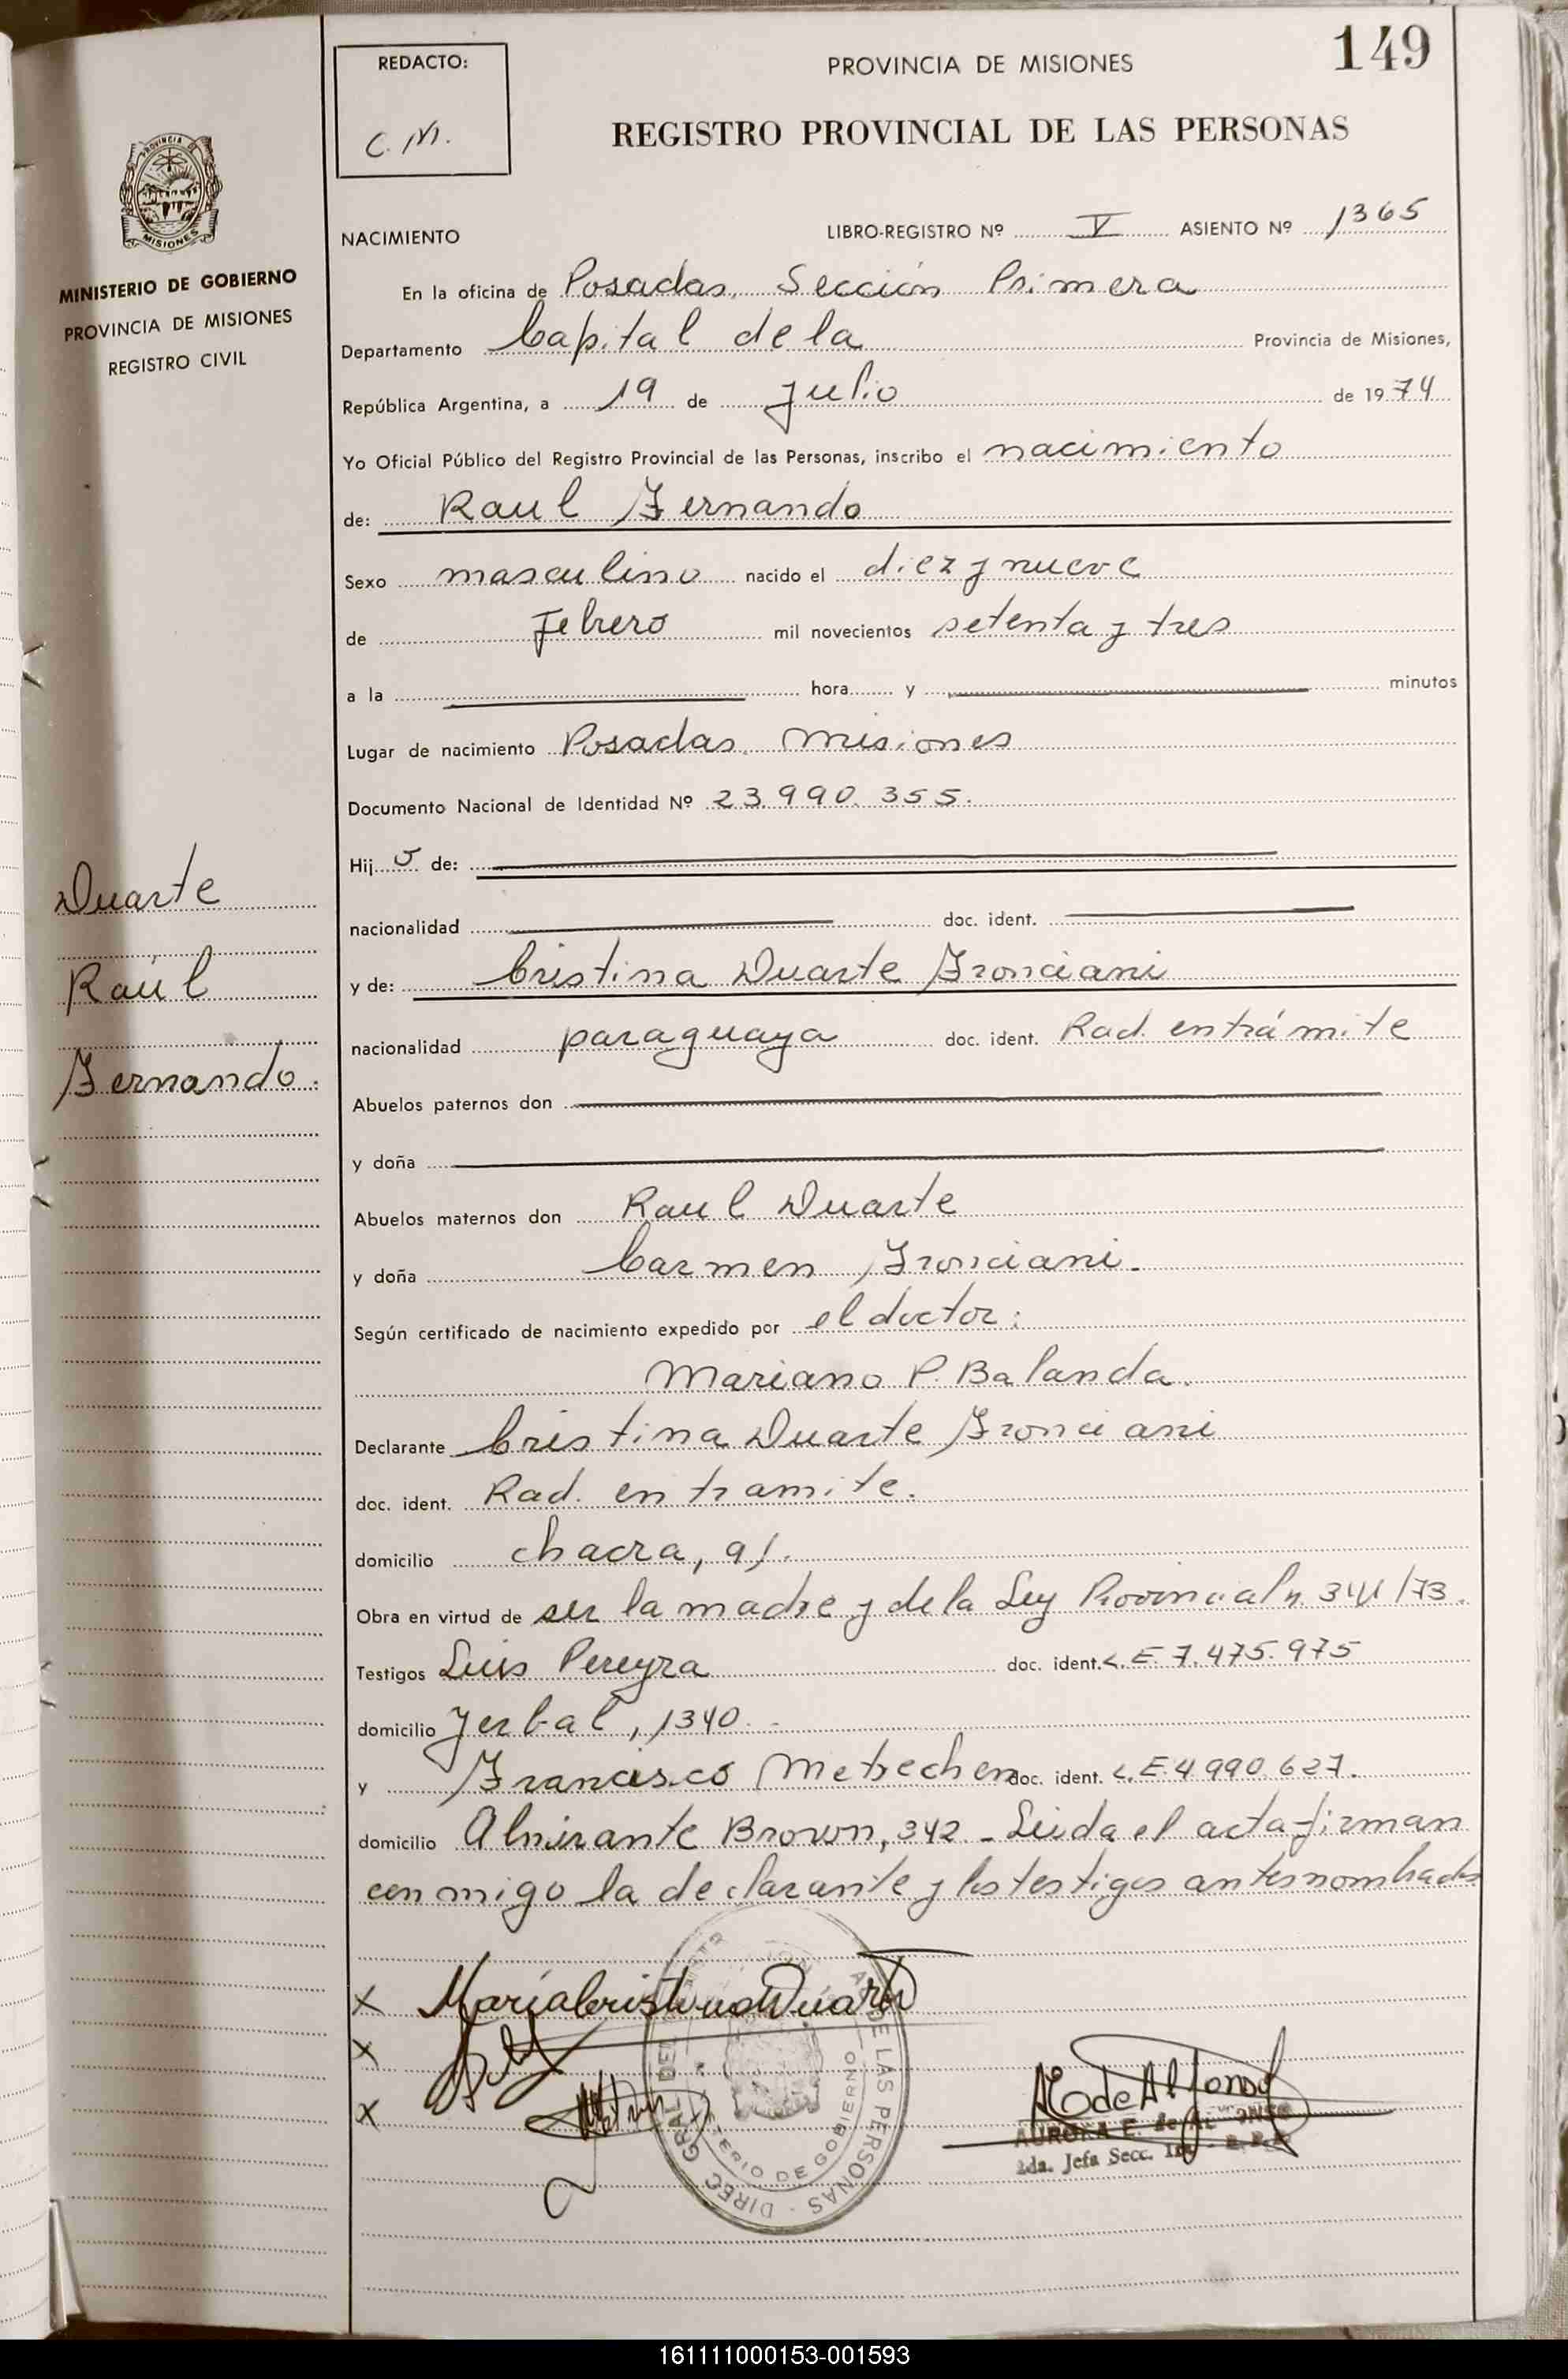 149
REDACTO:
C. M.
PROVINCIA DE MISIONES
REGISTRO PROVINCIAL DE LAS PERSONAS
PROVINCIA
MISIONES
MINISTERIO DE GOBIERNO
PROVINCIA DE MISIONES
REGISTRO CIVIL
NACIMIENTO LIBRO-REGISTRO Nº V ASIENTO Nº 1365
En la oficina de Posadas, Sección Primera
Departamento Capital de la Provincia de Misiones,
República Argentina, a 19 de Julio de 1974
Yo Oficial Público del Registro Provincial de las Personas, inscribo el nacimiento
de: Raul Fernando
Sexo masculino nacido el diez y nueve
de Febrero mil novecientos setenta y tres
a la hora y minutos
Lugar de nacimiento Posadas. Misiones
Documento Nacional de Identidad Nº 23.990.355.
Hij o de:
nacionalidad doc. ident.
y de: Cristina Duarte Fronciani
nacionalidad paraguaya doc. ident. Rad. en trámite
Abuelos paternos don
y doña
Abuelos maternos don Raul Duarte
y doña Carmen Fronciani.
Según certificado de nacimiento expedido por el doctor:
Mariano P. Balanda.
Declarante Cristina Duarte Fronciani
doc. ident. Rad. en tramite.
domicilio chacra, 91.
Obra en virtud de ser la madre y de la Ley Provincial n. /73.
Testigos Luis Pereyra doc. ident. L.E. 7.475.975
domicilio Yerbal, 1340.
y Francisco Metrechen doc. ident. L.E. 4.990.627.
domicilio Almirante Brown, 342 - Leida el acta firman
conmigo la declarante y los testigos antes nombrados
Duarte
Raúl
Fernando.
x María Cristina Duarte
x
x
DIREC. GRAL. DEL DE LAS PERSONAS
DE GOBIERNO
AURORA E. de
2da. Jefa Secc.
161111000153-001593